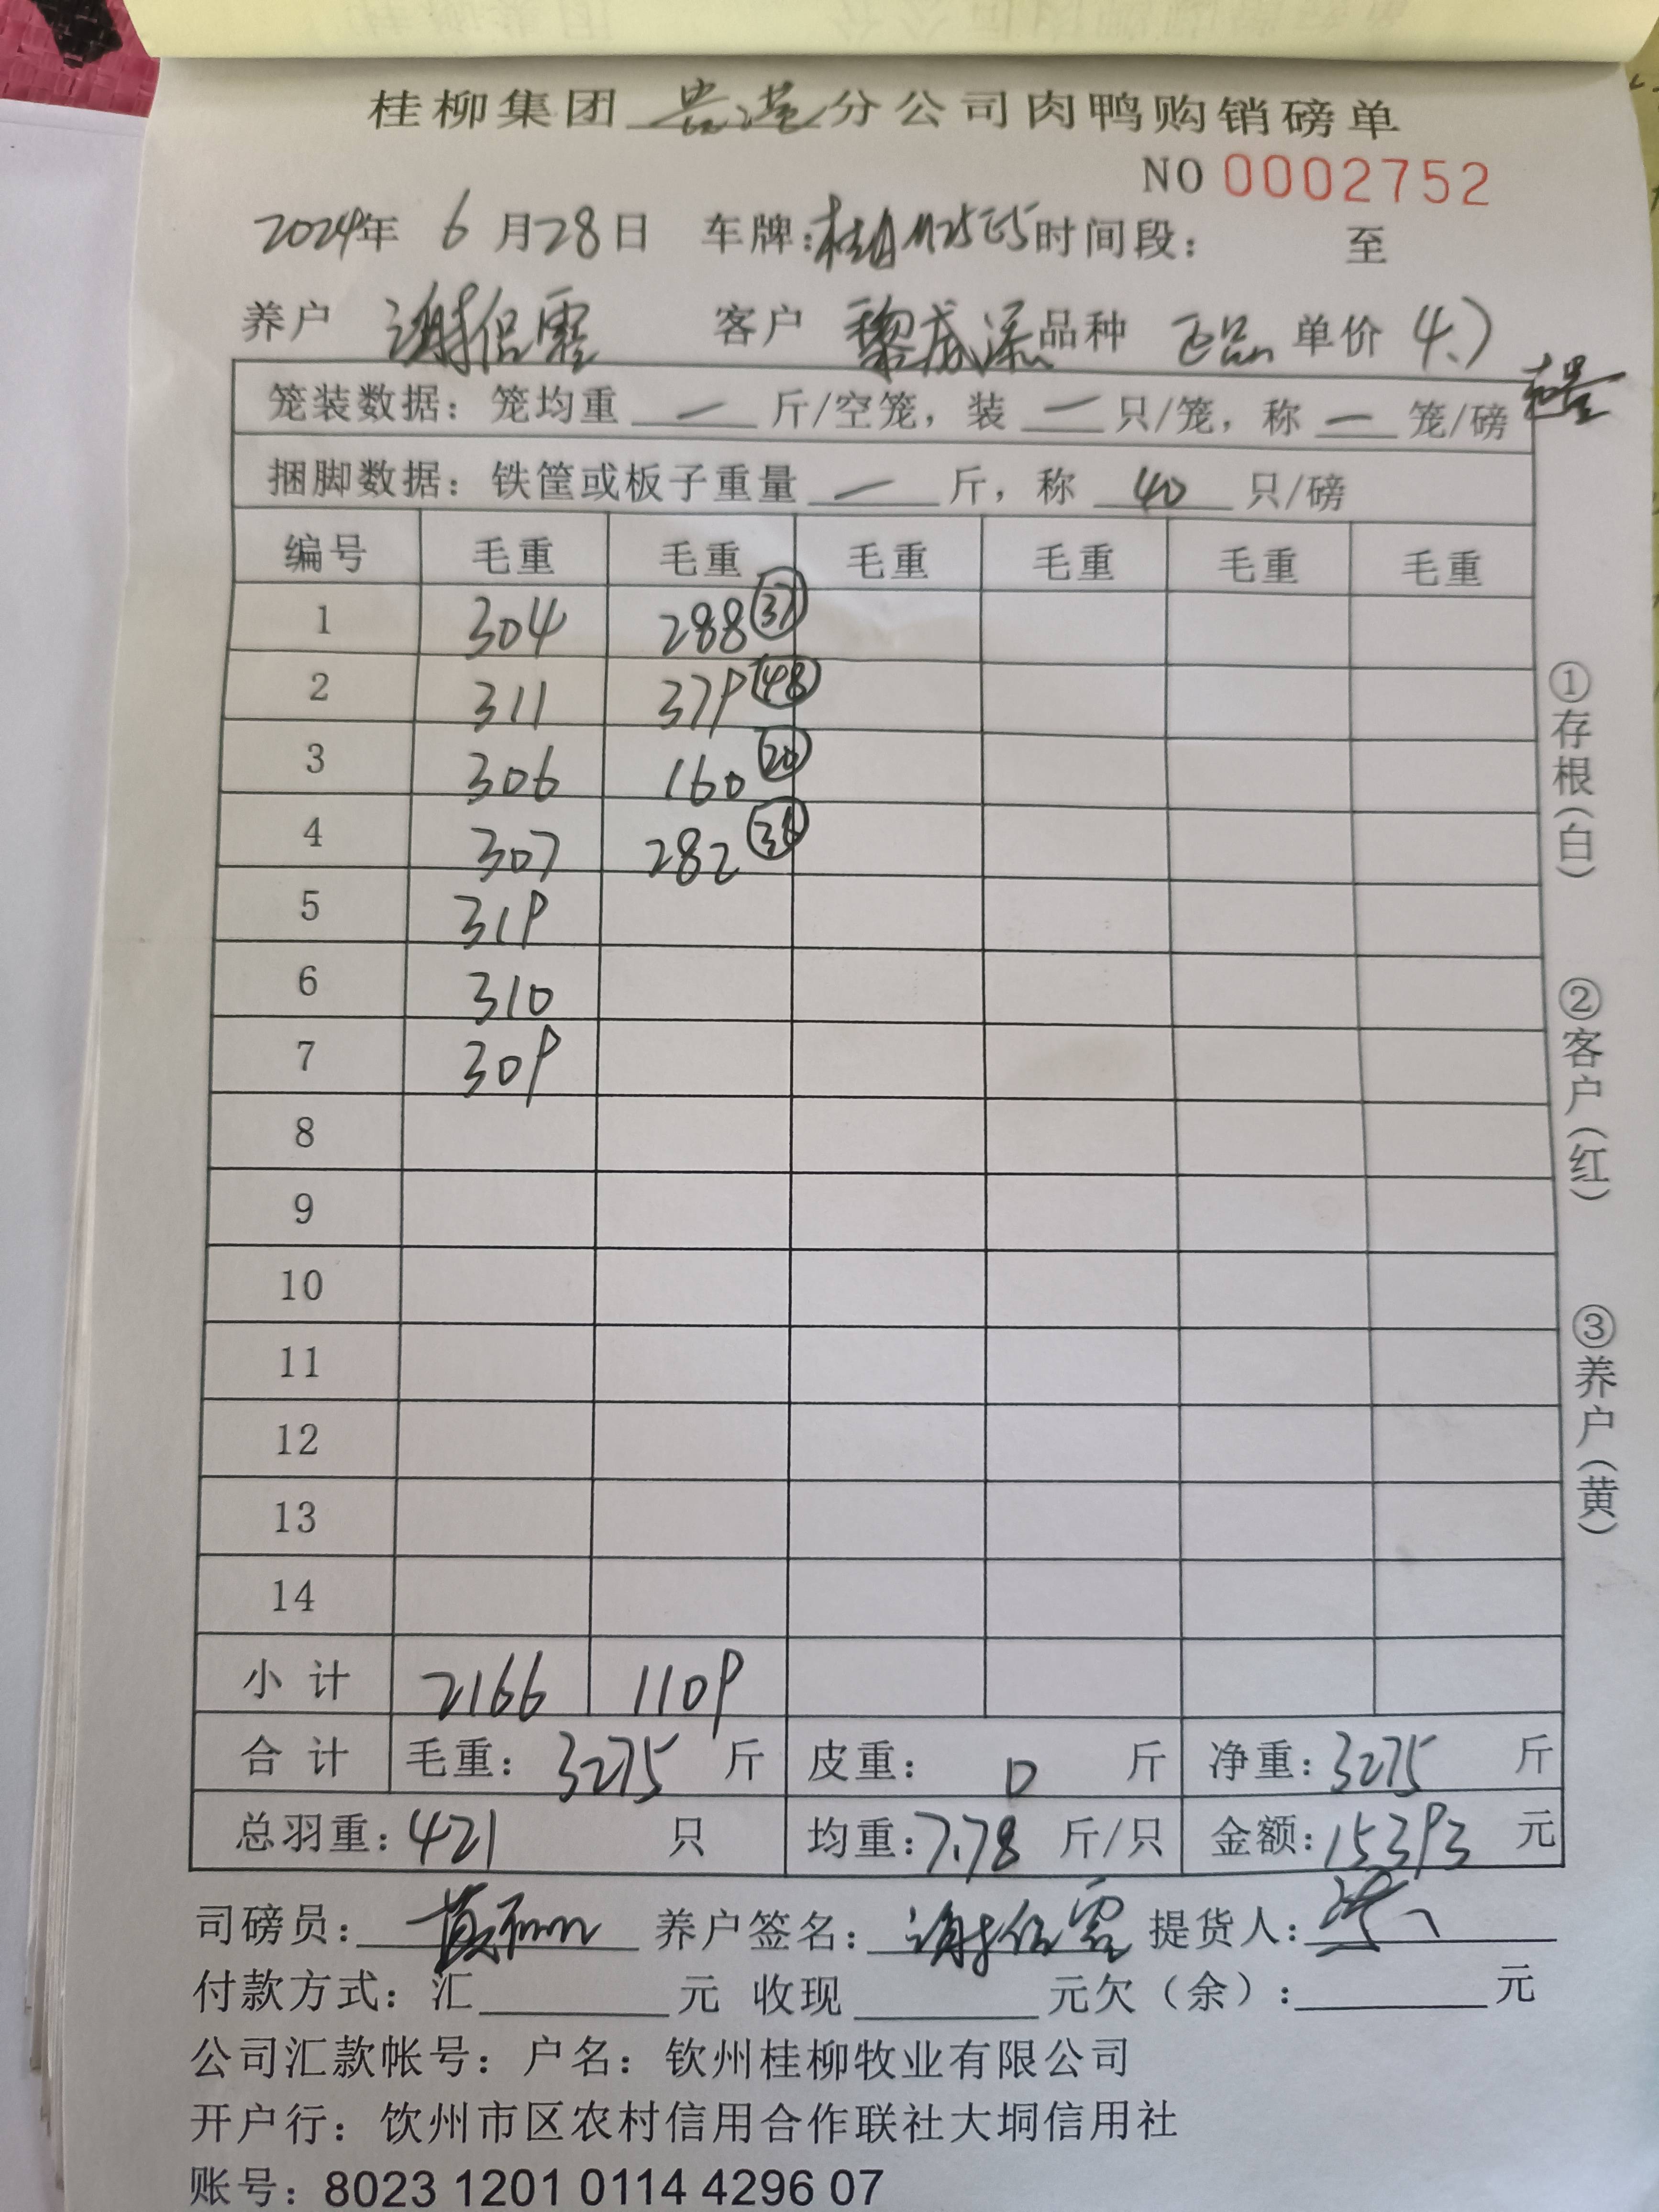 桂柳集团贵港分公司肉鸭购销磅单
NO 0002752
2024年 6月28日 车牌: 时间段: 至
养户 谢侣霞 客户 黎成添 品种 正品 单价 4.7
笼装数据: 笼均重 一 斤/空笼, 装 一 只/笼, 称 一 笼/磅
捆脚数据: 铁筐或板子重量 一 斤, 称 40 只/磅
编号 毛重 毛重 毛重 毛重 毛重 毛重
1 304 288 37
2 311 379 48
3 306 160 20
4 307 282 36
5 319
6 310
7 309
8
9
10
11
12
13
14
小计 2166 1109
合计 毛重: 3275 斤 皮重: 0 斤 净重: 3275 斤
总羽重: 421 只 均重: 7.78 斤/只 金额: 15393 元
司磅员: 养户签名: 谢侣霞 提货人:
付款方式: 汇 元 收现 元欠(余): 元
公司汇款帐号: 户名: 钦州桂柳牧业有限公司
开户行: 饮州市区农村信用合作联社大垌信用社
账号: 8023 1201 0114 4296 07
①存根(白)
②客户(红)
③养户(黄)